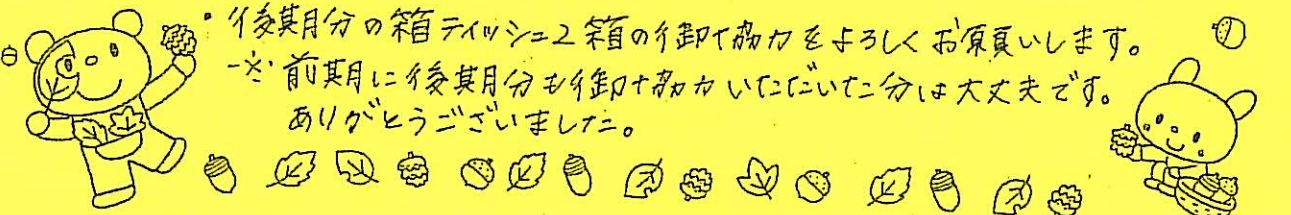 ・後期分の箱ティッシュ2箱の御協力をよろしくお願いします。
※前期に後期分も御協力いただいた分は大丈夫です。
ありがとうございました。